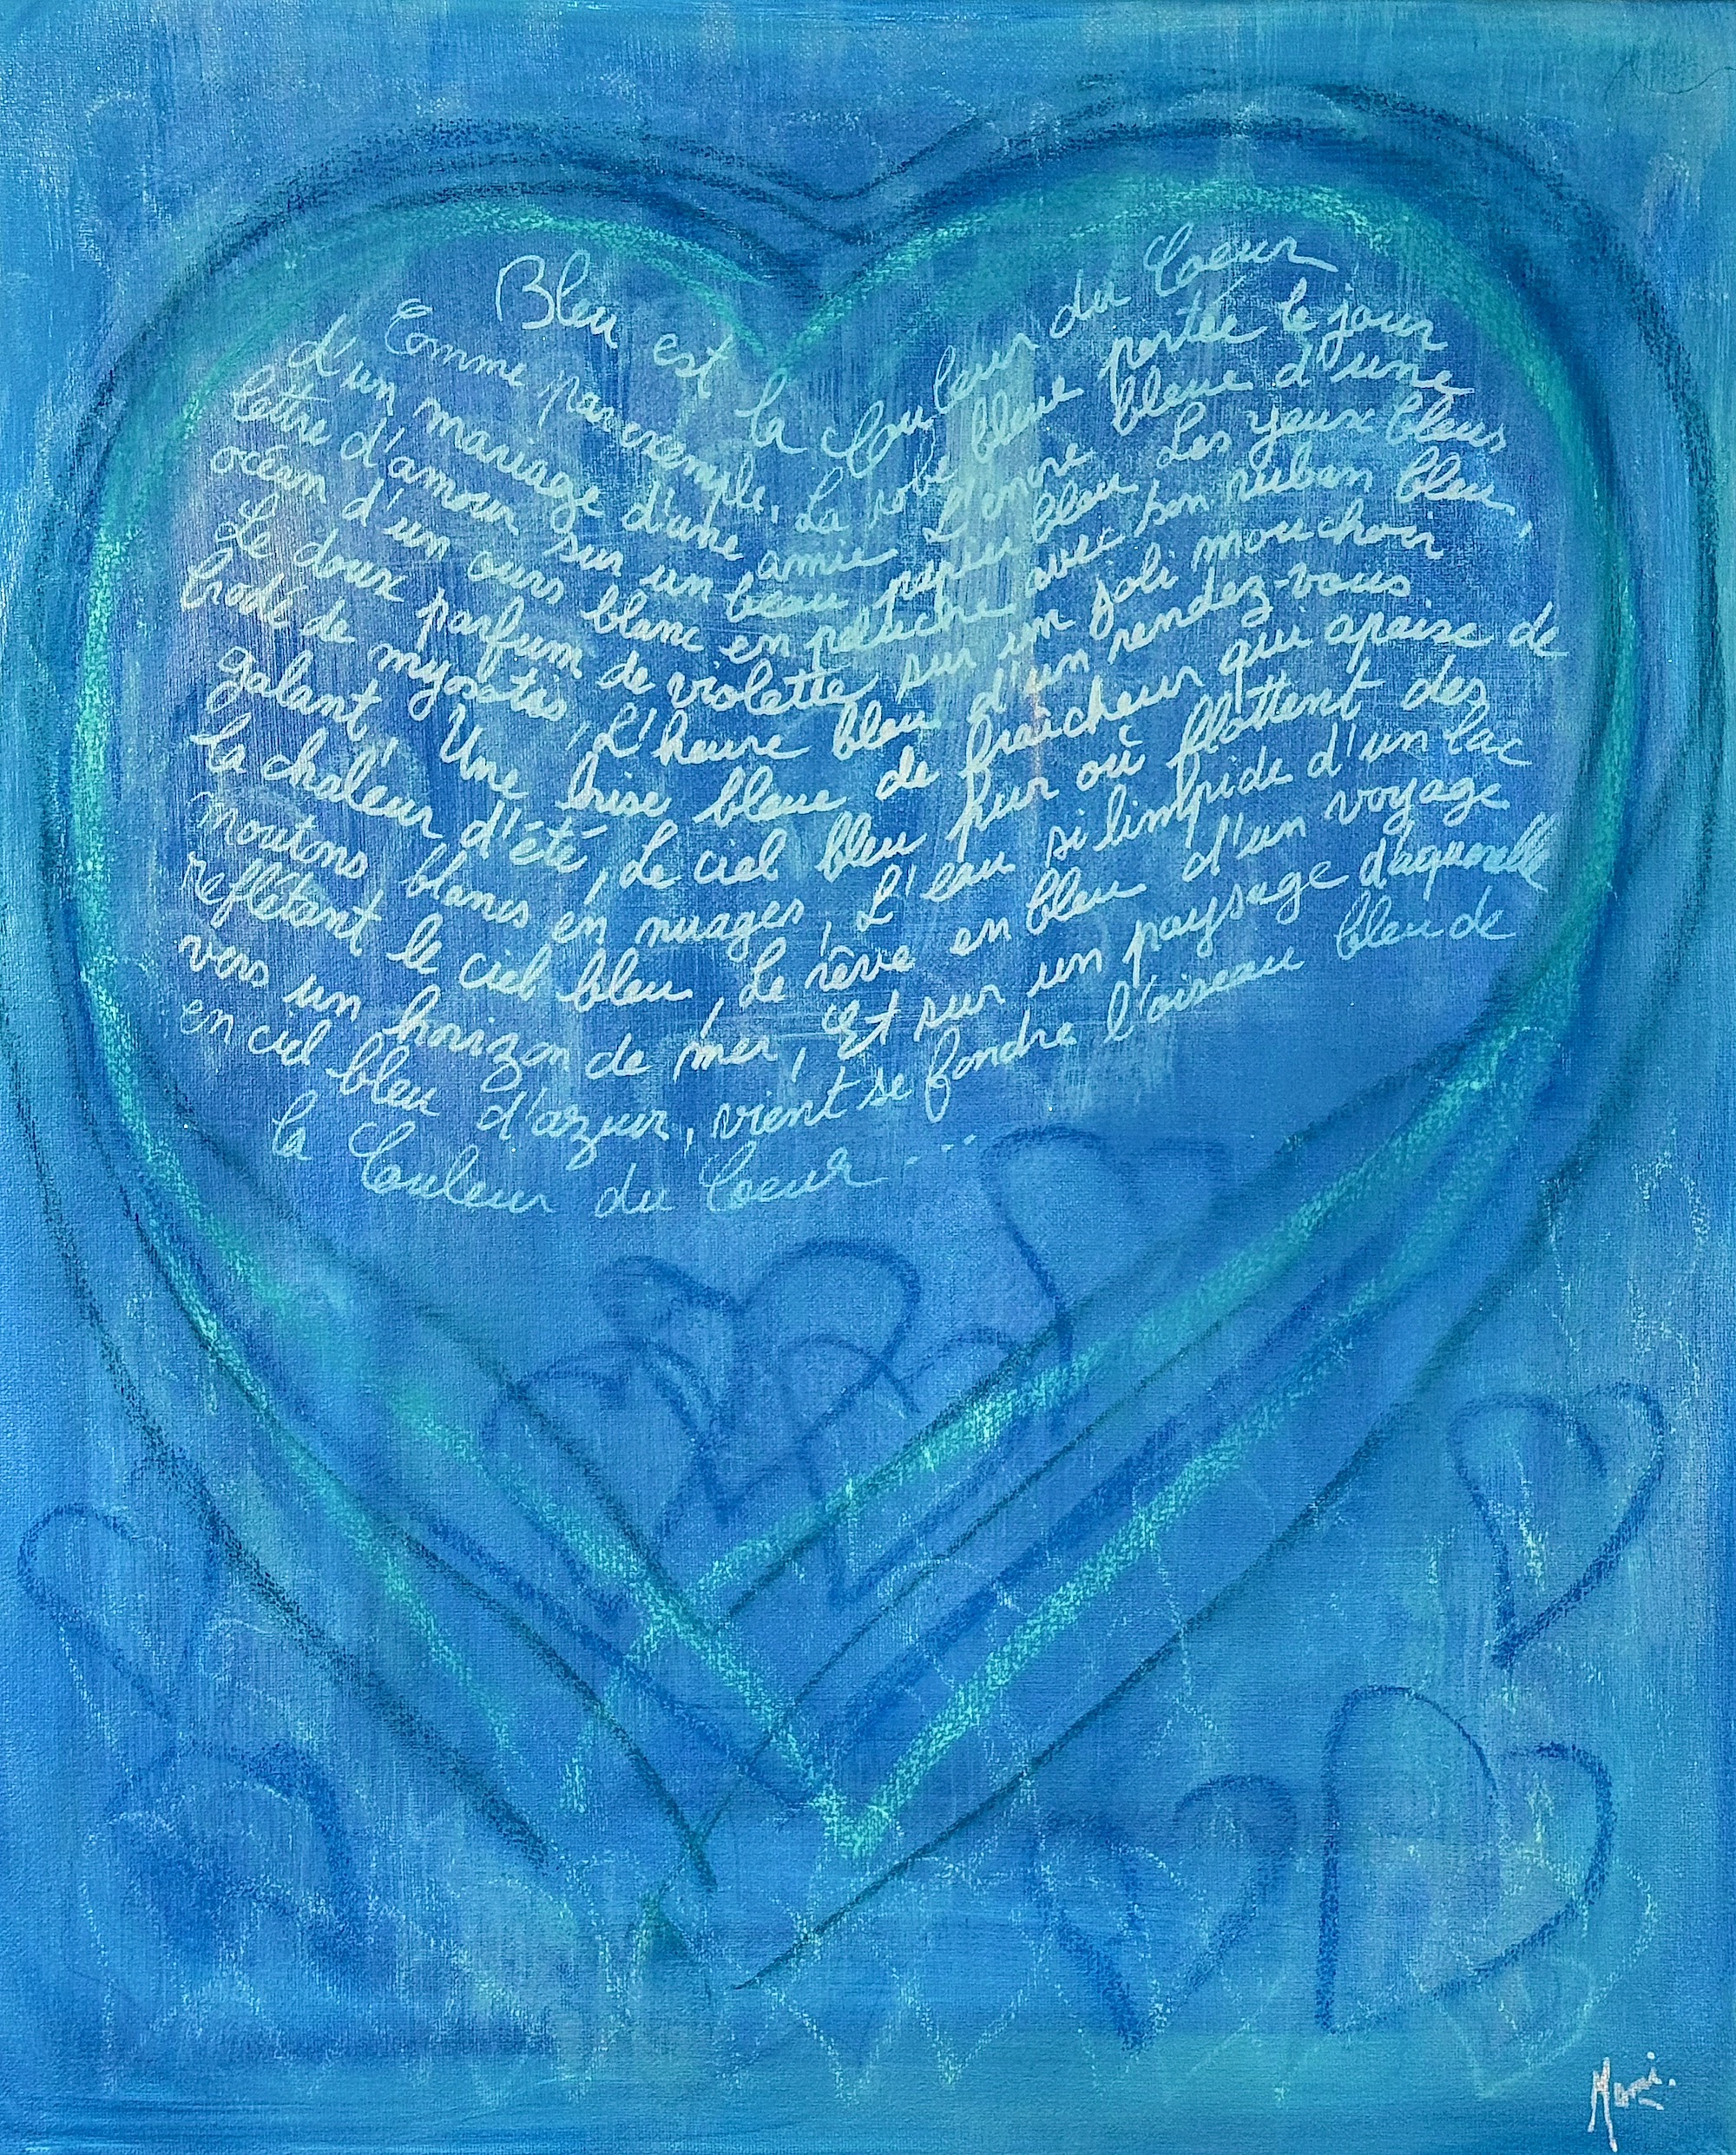 Bleu est la Couleur du Coeur
Comme par exemple, La robe bleue portée le jour
d'un mariage d'une amie L'encre bleue d'une
lettre d'amour sur un beau papier bleu Les yeux bleus
océan d'un ours blanc en peluche avec son ruban bleu,
Le doux parfum de violette sur un joli mouchoir
brodé de myosotis, L'heure bleu d'un rendez-vous
galant, Une brise bleue de fraîcheur qui apaise de
la chaleur d'été, Le ciel bleu pur où flottent des
moutons blancs en nuages, L'eau si limpide d'un lac
reflétant le ciel bleu, Le rêve en bleu d'un voyage
vers un horizon de mer, Et sur un paysage d'aquarelle
en ciel bleu d'azur, vient se fondre l'oiseau bleu de
la Couleur du Coeur...